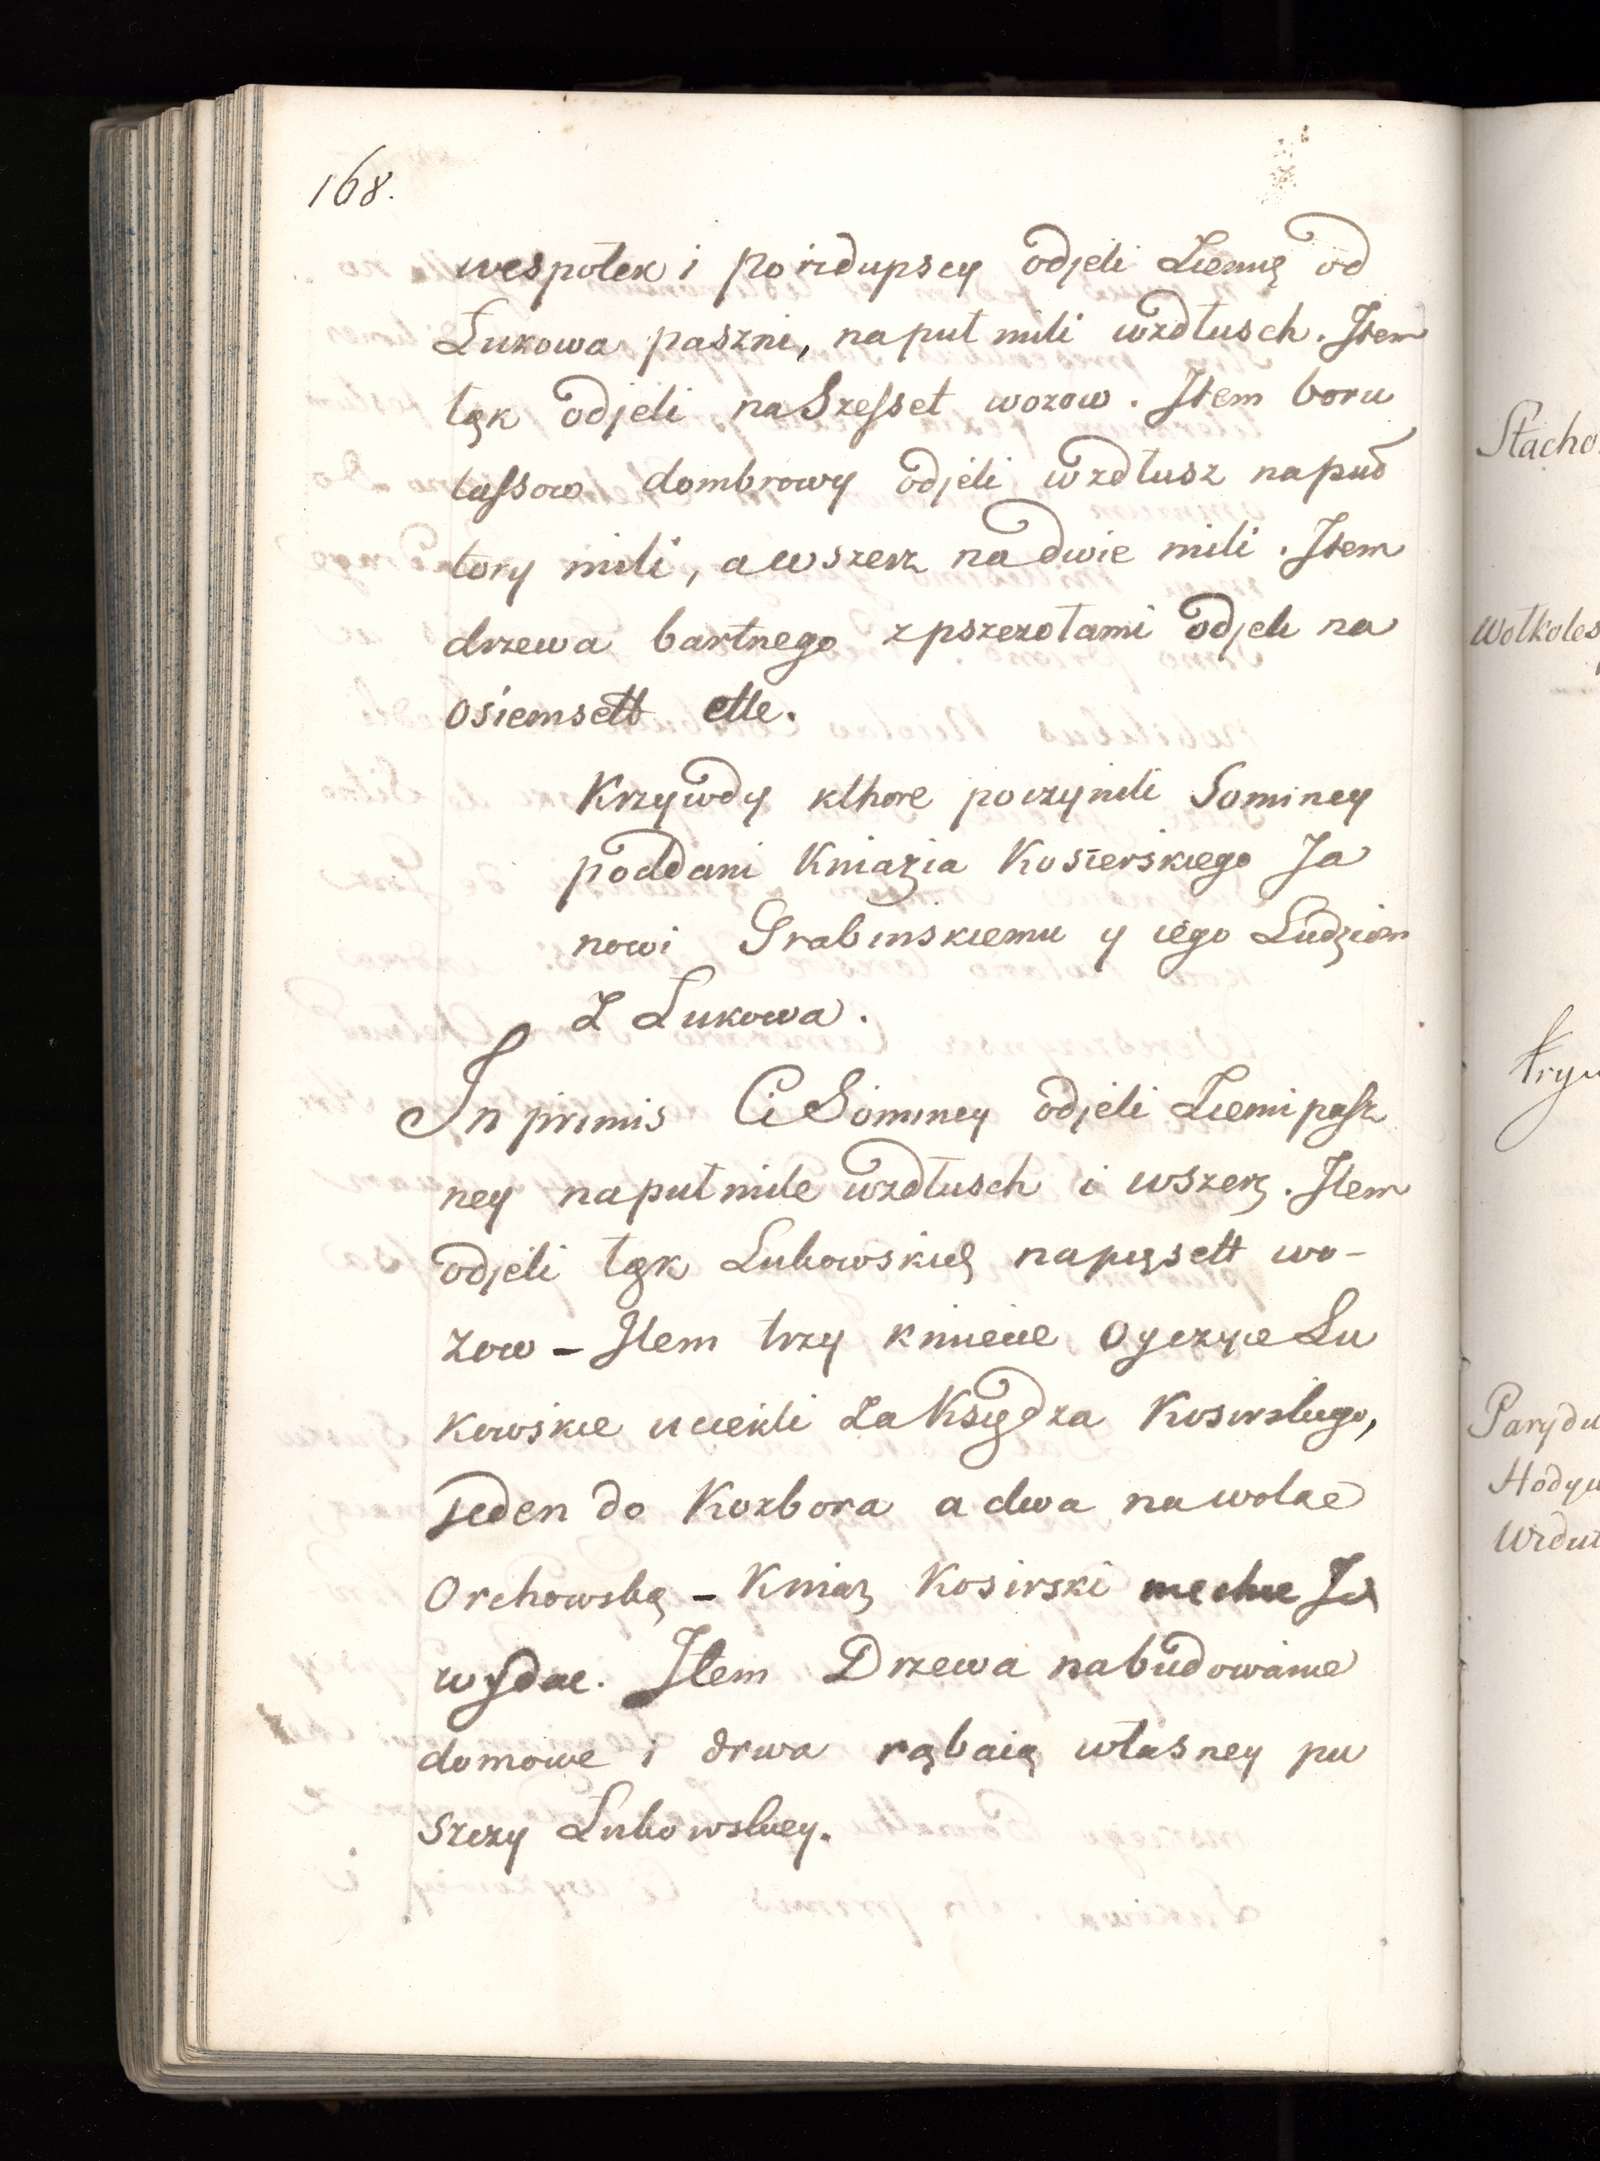 168.
wespolek i poridupscy odjeli Ziemię od
Łukowa paszni, na puł mili wzdłusch. Item
łąk odjeli na Szesset wozow. Item boru
lassow dombrowy odjeli wzdłusz na puł
tory mili, a wszerz na dwie mili. Item
drzewa bartnego z pszczołami odjeli na
osiemsett ette.
Krzywdy kthore poczynili Somincy
poddani Kniazia Kosierskiego Ja
nowi Grabinskiemu y iego Ludziom
Z Łukowa.
In primis Ci Somincy odjeli Ziemi pasz
ney na puł mile wzdłusch i wszerz. Item
odjeli łąk Lubowskię na pięsett wo-
zow - Item trzy kmiecie oyczyce Lu
kowskie uciekli za Księdza Kosirskiego,
jeden do Kozbora a dwa na wolae
Orchowską - Kniaz Kosirski niechce Ja
wydac. Item Drzewa na budowanie
domowe i drwa rąbaią własney pu
szczy Lubowskiey.
Stacho
Wołkoles
Parydu
Hodyw
Widut